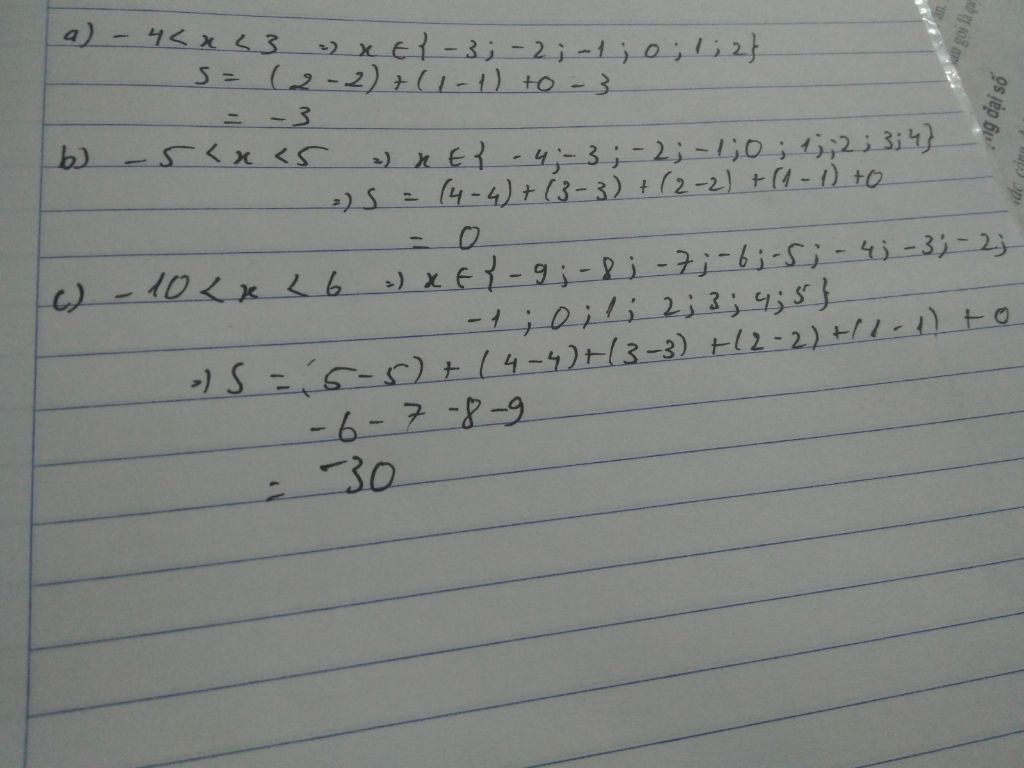 a) -4 < x < 3 => x ∈ { -3; -2; -1; 0; 1; 2}
S = (2-2)+(1-1) +0 - 3
= -3
b) -5 < x < 5 => x ∈ { -4; -3; -2; -1; 0; 1;; 2; 3; 4}
=> S = (4-4)+(3-3)+(2-2)+(1-1)+0
= 0
c) -10 < x < 6 => x ∈ { -9; -8; -7; -6; -5; -4; -3; -2;
-1; 0; 1; 2; 3; 4; 5}
=> S = (5-5)+(4-4)+(3-3)+(2-2)+(1-1)+0
-6-7-8-9
= -30
đại số